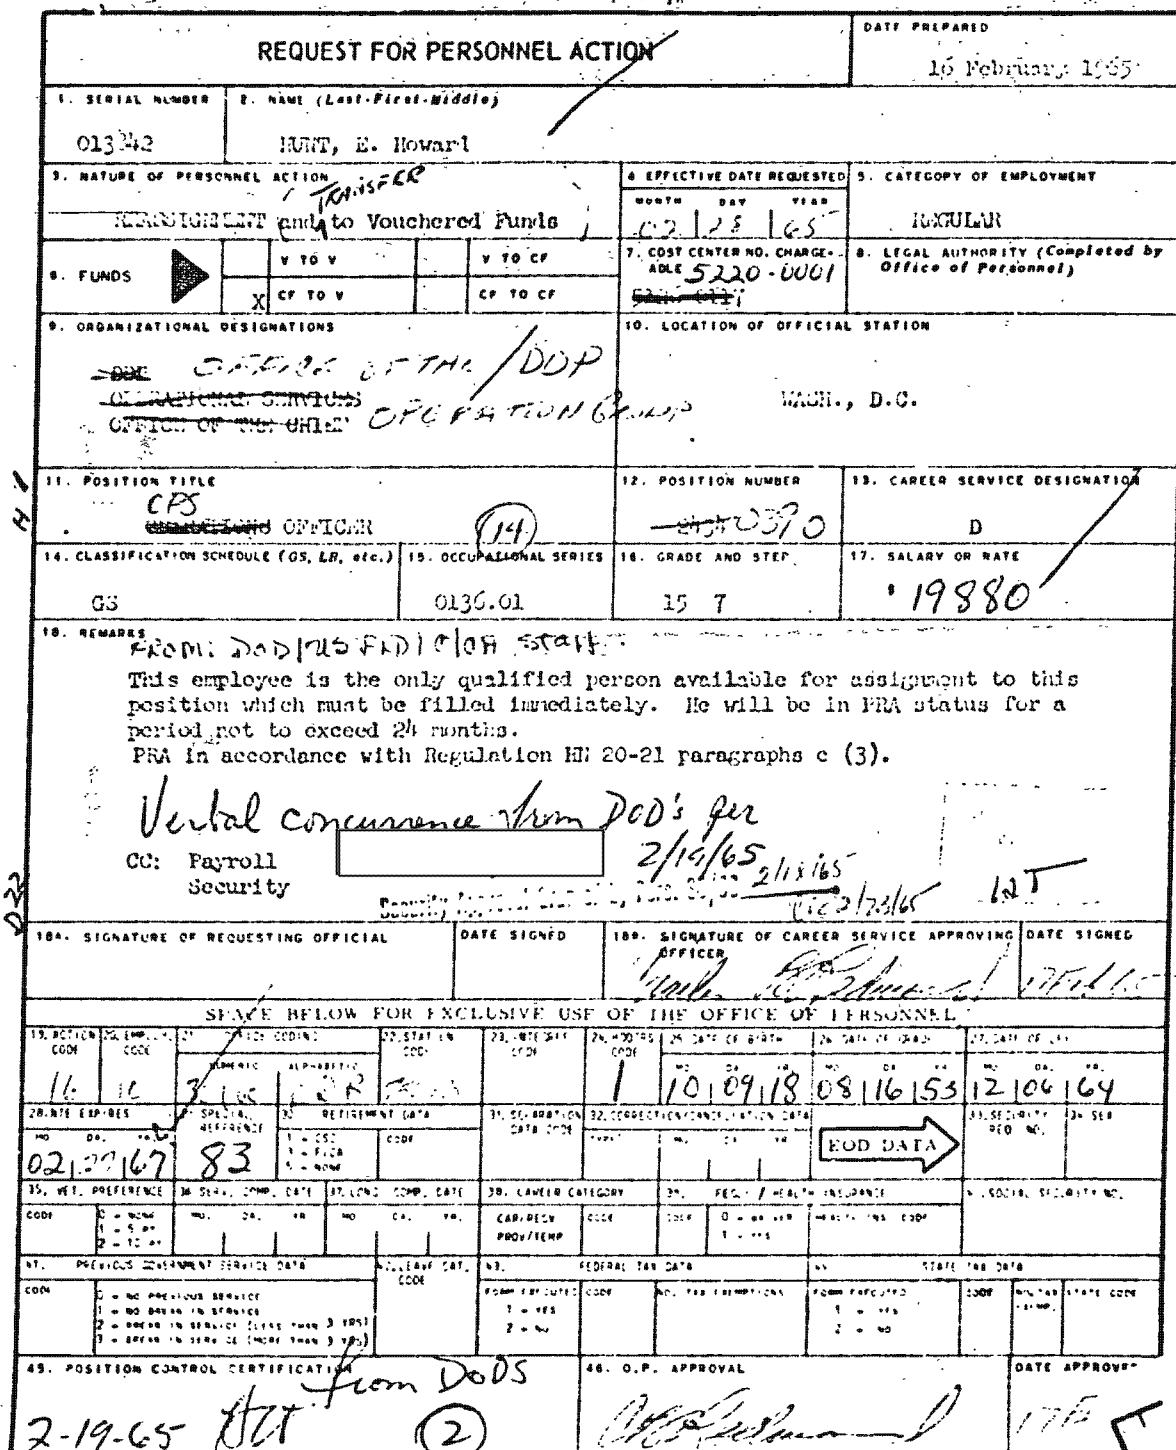 REQUEST FOR PERSONNEL ACTION
DATE PREPARED
16 February 1965
1. SERIAL NUMBER
2. NAME (Last-First-Middle)
HUNT, E. Howard
3. NATURE OF PERSONNEL ACTION
TRANSFER
REASSIGNMENT and to Vouchered Funds
4 EFFECTIVE DATE REQUESTED
MONTH DAY YEAR
02 28 65
5. CATEGORY OF EMPLOYMENT
REGULAR
6. FUNDS
V TO V
V TO CF
X CF TO V
CF TO CF
7. COST CENTER NO. CHARGE-
ABLE 5220-0001
8. LEGAL AUTHORITY (Completed by
Office of Personnel)
9. ORGANIZATIONAL DESIGNATIONS
OFFICE OF THE /DDP
OPERATIONAL SERVICES
OFFICE OF THE CHIEF OPERATION GROUP
10. LOCATION OF OFFICIAL STATION
WASH., D.C.
11. POSITION TITLE
OPS
OFFICER (14)
12. POSITION NUMBER
0390
13. CAREER SERVICE DESIGNATION
D
14. CLASSIFICATION SCHEDULE (GS, LB, etc.)
GS
15. OCCUPATIONAL SERIES
0136.01
16. GRADE AND STEP
15 7
17. SALARY OR RATE
19880
18. REMARKS
FROM: DOD/US FLD/
This employee is the only qualified person available for assignment to this
position which must be filled immediately. He will be in PRA status for a
period not to exceed 24 months.
PRA in accordance with Regulation HR 20-21 paragraphs c (3).
Verbal concurrence from DOD's per
2/19/65
CC: Payroll
Security
2/18/65
2/23/65
18A. SIGNATURE OF REQUESTING OFFICIAL
DATE SIGNED
18B. SIGNATURE OF CAREER SERVICE APPROVING
OFFICER
DATE SIGNED
SPACE BELOW FOR EXCLUSIVE USE OF THE OFFICE OF PERSONNEL
19. ACTION
CODE
20. EMPLOY.
CODE
21. OFFICE CODING
NUMERIC ALPHABETIC
22. STATION
CODE
23. INTEGREE
CODE
24. HDQTRS
CODE
1
25. DATE OF BIRTH
MO. DA. YR.
10 09 18
26. DATE OF GRADE
MO. DA. YR.
08 16 53
27. DATE OF LEI
MO. DA. YR.
12 06 64
28. NTE EXPIRES
MO. DA. YR.
02 27 67
29. SPECIAL
REFERENCE
83
30. RETIREMENT DATA
1 - CSC
3 - FICA
5 - NONE
CODE
31. SEPARATION
DATA CODE
32. CORRECTION/CANCELLATION DATA
TYPE MO. DA. YR.
EOD DATA
33. SECURITY
REQ. NO.
34. SEX
35. VET. PREFERENCE
CODE
0 - NONE
1 - 5 PT
2 - 10 PT
36. SERV. COMP. DATE
MO. DA. YR.
37. LONG. COMP. DATE
MO. DA. YR.
38. CAREER CATEGORY
CAR/RESV
PROV/TEMP
CODE
39. FEGLI / HEALTH INSURANCE
CODE
0 - WAIVER
1 - YES
HEALTH INS. CODE
40. SOCIAL SECURITY NO.
41. PREVIOUS GOVERNMENT SERVICE DATA
CODE
0 - NO PREVIOUS SERVICE
1 - NO BREAK IN SERVICE
2 - BREAK IN SERVICE (LESS THAN 3 YRS)
3 - BREAK IN SERVICE (MORE THAN 3 YRS)
42. LEAVE CAT.
CODE
43. FEDERAL TAX DATA
FORM EXECUTED
1 - YES
2 - NO
CODE
NO. TAX EXEMPTIONS
44. STATE TAX DATA
FORM EXECUTED
1 - YES
2 - NO
CODE
NO. TAX
EXEMP.
STATE CODE
45. POSITION CONTROL CERTIFICATION
from DODS
2-19-65
(2)
46. O.P. APPROVAL
DATE APPROVED